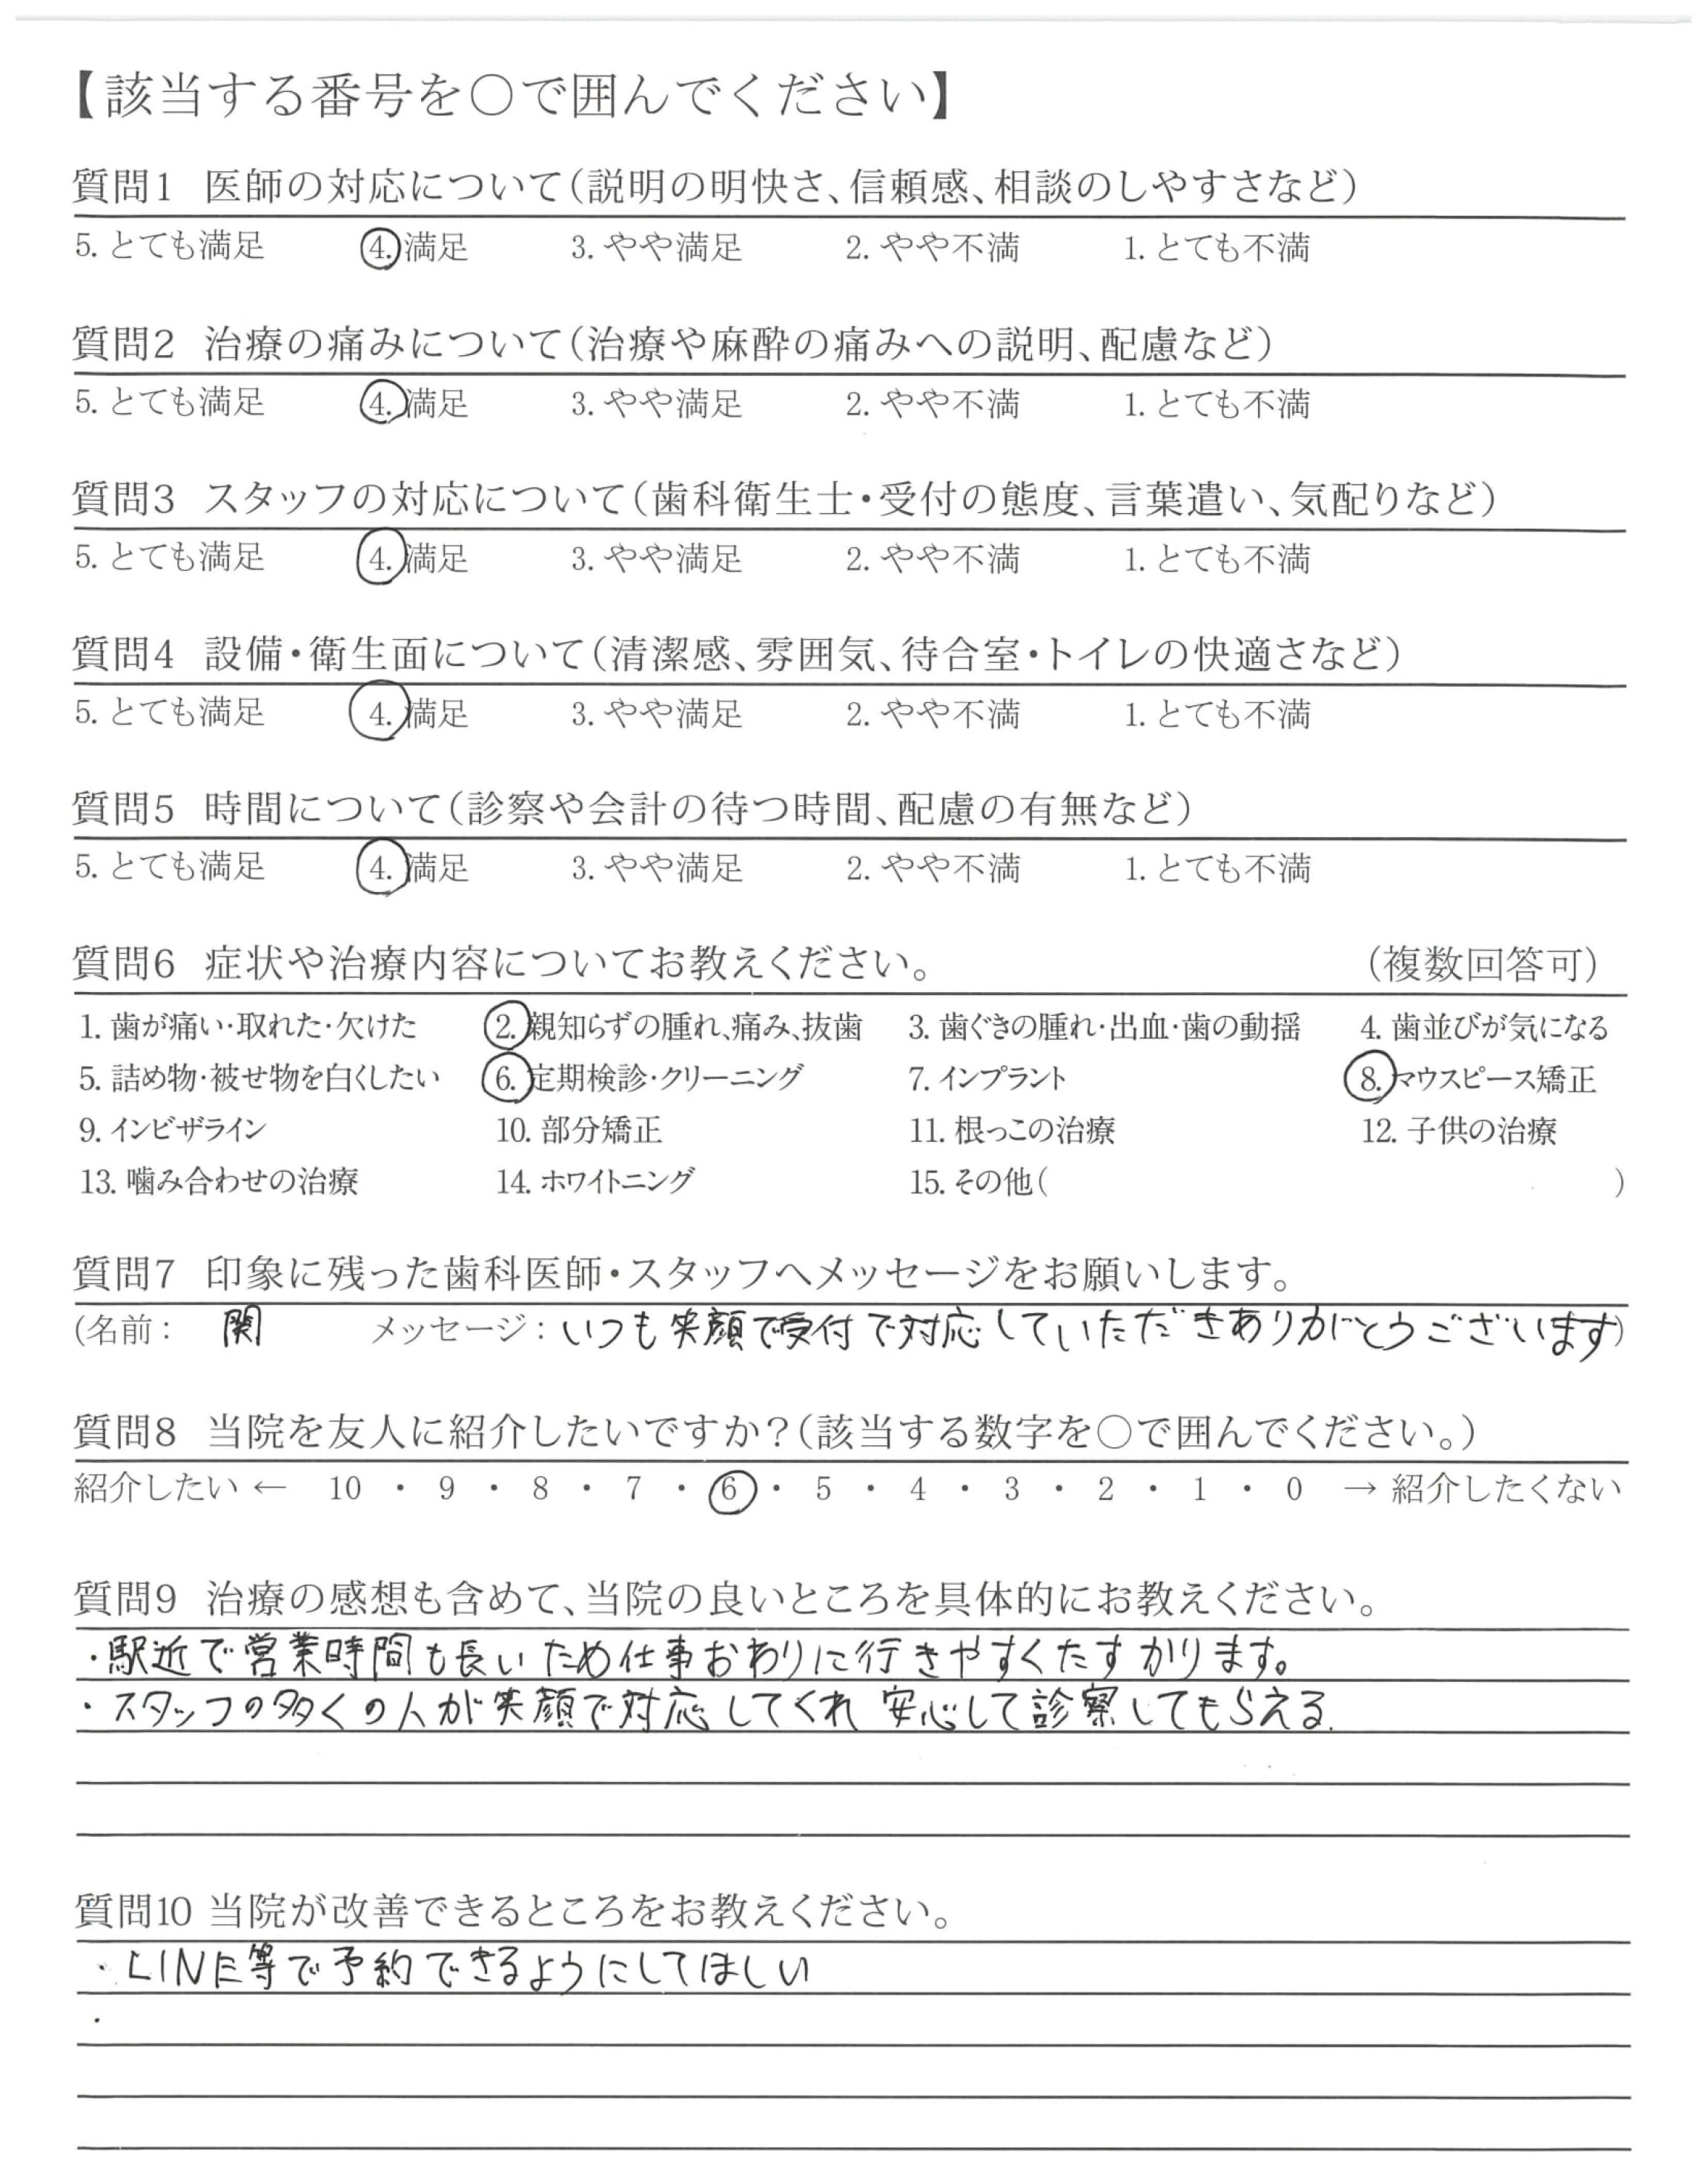 【該当する番号を○で囲んでください】
質問1 医師の対応について(説明の明快さ、信頼感、相談のしやすさなど)
5. とても満足 4. 満足 3. やや満足 2. やや不満 1. とても不満
質問2 治療の痛みについて(治療や麻酔の痛みへの説明、配慮など)
5. とても満足 4. 満足 3. やや満足 2. やや不満 1. とても不満
質問3 スタッフの対応について(歯科衛生士・受付の態度、言葉遣い、気配りなど)
5. とても満足 4. 満足 3. やや満足 2. やや不満 1. とても不満
質問4 設備・衛生面について(清潔感、雰囲気、待合室・トイレの快適さなど)
5. とても満足 4. 満足 3. やや満足 2. やや不満 1. とても不満
質問5 時間について(診察や会計の待つ時間、配慮の有無など)
5. とても満足 4. 満足 3. やや満足 2. やや不満 1. とても不満
質問6 症状や治療内容についてお教えください。 (複数回答可)
1. 歯が痛い・取れた・欠けた 2. 親知らずの腫れ、痛み、抜歯 3. 歯ぐきの腫れ・出血・歯の動揺 4. 歯並びが気になる
5. 詰め物・被せ物を白くしたい 6. 定期検診・クリーニング 7. インプラント 8. マウスピース矯正
9. インビザライン 10. 部分矯正 11. 根っこの治療 12. 子供の治療
13. 噛み合わせの治療 14. ホワイトニング 15. その他( )
質問7 印象に残った歯科医師・スタッフへメッセージをお願いします。
(名前: 関 メッセージ: いつも笑顔で受付で対応していただきありがとうございます)
質問8 当院を友人に紹介したいですか?(該当する数字を○で囲んでください。)
紹介したい ← 10 ・ 9 ・ 8 ・ 7 ・ 6 ・ 5 ・ 4 ・ 3 ・ 2 ・ 1 ・ 0 → 紹介したくない
質問9 治療の感想も含めて、当院の良いところを具体的にお教えください。
・駅近で営業時間も長いため仕事おわりに行きやすくたすかります。
・スタッフの多くの人が笑顔で対応してくれ 安心して診察してもらえる.
質問10 当院が改善できるところをお教えください。
・LINE等で予約できるようにしてほしい
・